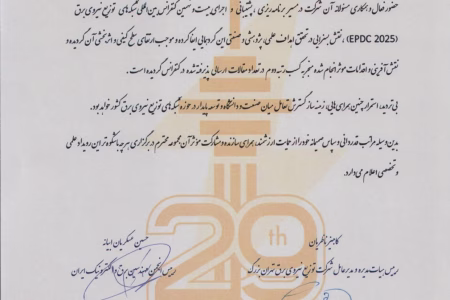 حضور فعال و همکاری مسئولانه آن شرکت در مسیر برنامه‌ریزی، پشتیبانی و اجرای بیست و نهمین کنفرانس بین‌المللی شبکه‌های توزیع نیروی برق
(EPDC 2025)، نقش بسزایی در تحقق اهداف علمی، پژوهشی و صنعتی این گردهمایی ایفا کرده و موجب ارتقای سطح کیفی و اثربخشی آن گردید و
نقش آفرینی و اقدامات موثر انجام شده منجر به کسب رتبه دوم در تعداد مقالات ارسالی پذیرفته شده در کنفرانس گردیده است.
بی‌تردید، استمرار چنین همراهی‌هایی، زمینه‌ساز گسترش تعامل میان صنعت و دانشگاه و توسعه پایدار در حوزه شبکه‌های توزیع نیروی برق کشور خواهد بود.
بدین وسیله مراتب قدردانی و سپاس صمیمانه خود را از حمایت ارزشمند، همراهی سازنده و مشارکت موثر آن مجموعه محترم در برگزاری هرچه باشکوه‌تر این رویداد علمی
و تخصصی اعلام می‌دارد.
29th
کامبیز ناظریان
رییس هیات مدیره و مدیرعامل شرکت توزیع نیروی برق تهران بزرگ
حسین عسکریان ابیانه
رییس انجمن مهندسین برق و الکترونیک ایران